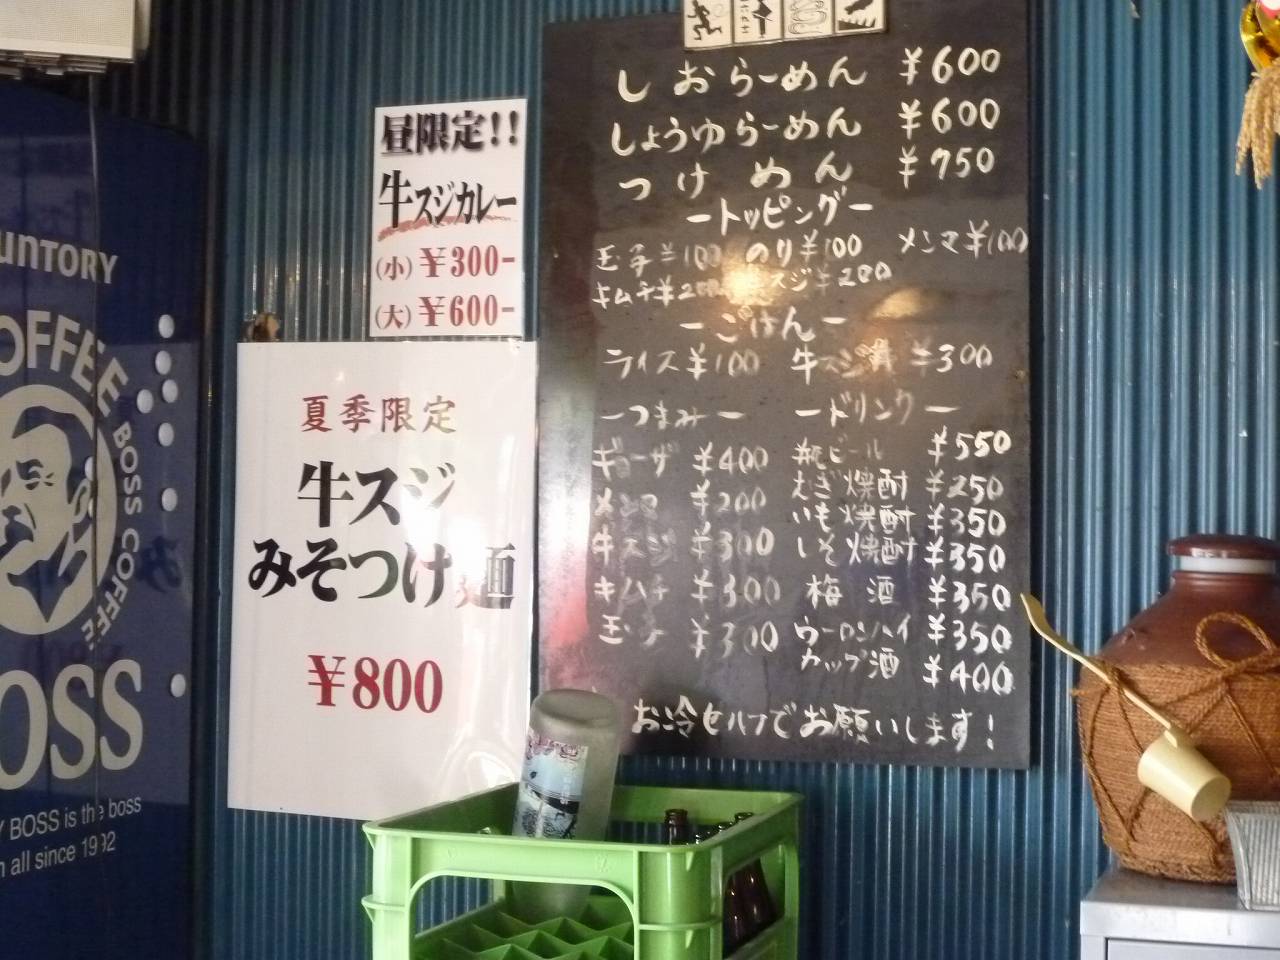 SUNTORY
COFFEE
BOSS COFFEE
BOSS
BOSS is the boss
all since 1992
昼限定!!
牛スジカレー
(小) ¥300-
(大) ¥600-
夏季限定
牛スジ
みそつけ麺
¥800
しおらーめん ¥600
しょうゆらーめん ¥600
つけめん ¥750
ートッピングー
玉子¥100 のり¥100 メンマ¥100
キムチ¥200 牛スジ¥200
ーごはんー
ライス¥100 牛スジ丼¥300
ーつまみー
ギョーザ ¥400
メンマ ¥200
牛スジ ¥300
キムチ ¥300
玉子 ¥300
ードリンクー
瓶ビール ¥550
むぎ焼酎 ¥250
いも焼酎 ¥350
しそ焼酎 ¥350
梅酒 ¥350
ウーロンハイ ¥350
カップ酒 ¥400
お冷セルフでお願いします!